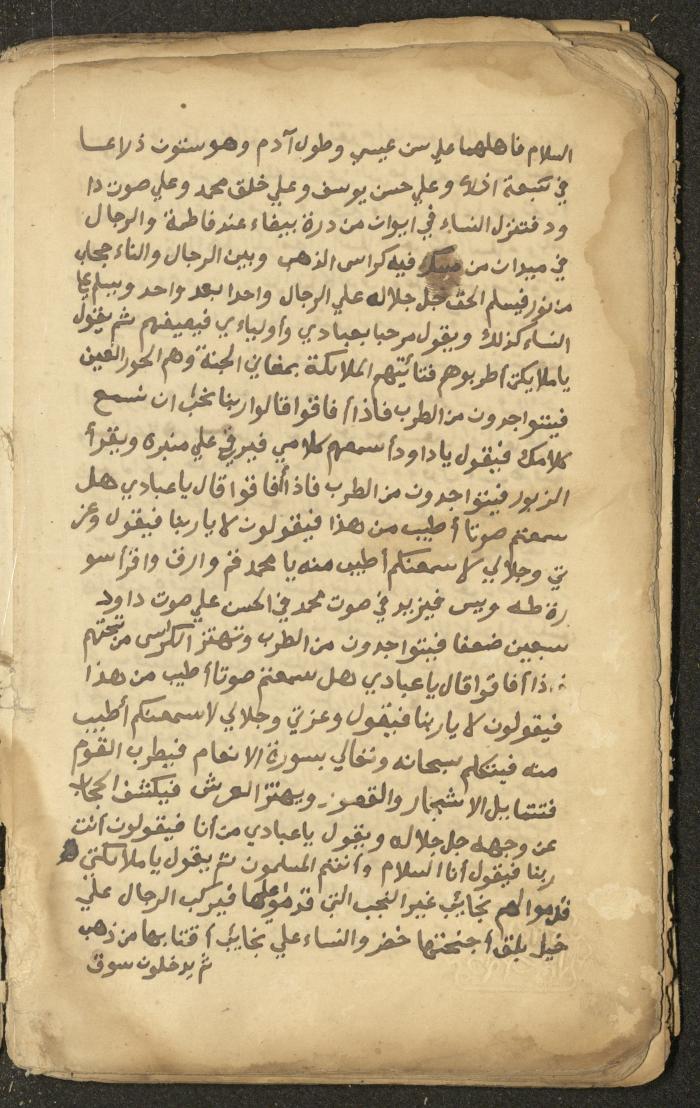 السلام فاهلهما علي سن عيسي وطول آدم وهو ستون ذراعا
في سبعة اذرع وعلي حسن يوسف وعلي خلق محمد وعلي صوت دا
ود فتنزل النساء في ايوان من درة بيضاء عند فاطمة والرجال
في ميدان من مسك فيه كراسي الذهب وبين الرجال والنساء حجاب
من نور فيسلم الحق جل جلاله علي الرجال واحدا بعد واحد ويسلم علي
النساء كذلك ويقول مرحبا بعبادي وأوليا۽ي فيضيفهم ثم يقول
يا ملايكتي أطربوهم فتأتيهم الملايكة بمغاني الجنة وهم الحور العين
فيتواجدون من الطرب فاذا أفاقوا قالوا ربنا نحب ان نسمع
كلامك فيقول يا داود أسمعهم كلامي فيرقي علي منبره ويقرأ
الزبور فيتواجدون من الطرب فاذا أفاقوا قال يا عبادي هل
سمعتم صوتا أطيب من هذا فيقولون لا يا ربنا فيقول وعز
تي وجلالي لاسمعنكم أطيب منه يا محمد قم وارق واقرأ سو
رة طه ويس فيزيد في صوت محمد في الحسن علي صوت داود
سبعين ضعفا فيتواجدون من الطرب وتهتز الكراسي من تحتهم
فاذا أفاقوا قال يا عبادي هل سمعتم صوتا أطيب من هذا
فيقولون لا يا ربنا فيقول وعزتي وجلالي لاسمعنكم أطيب
منه فيتكلم سبحانه وتعالي بسورة الانعام فيطرب القوم
فتتمايل الاشجار والقصور ويهتز العرش فيكشف الحجاب
عن وجهه جل جلاله ويقول يا عبادي من أنا فيقولون أنت
ربنا فيقول أنا السلام وأنتم المسلمون ثم يقول يا ملائكتي
قدموا لهم نجايب غير النجب التي قدموا عليها فيركب الرجال علي
خيل بلق أجنحتها خضر والنساء علي نجايب أقتابها من ذهب
ثم يدخلون سوق